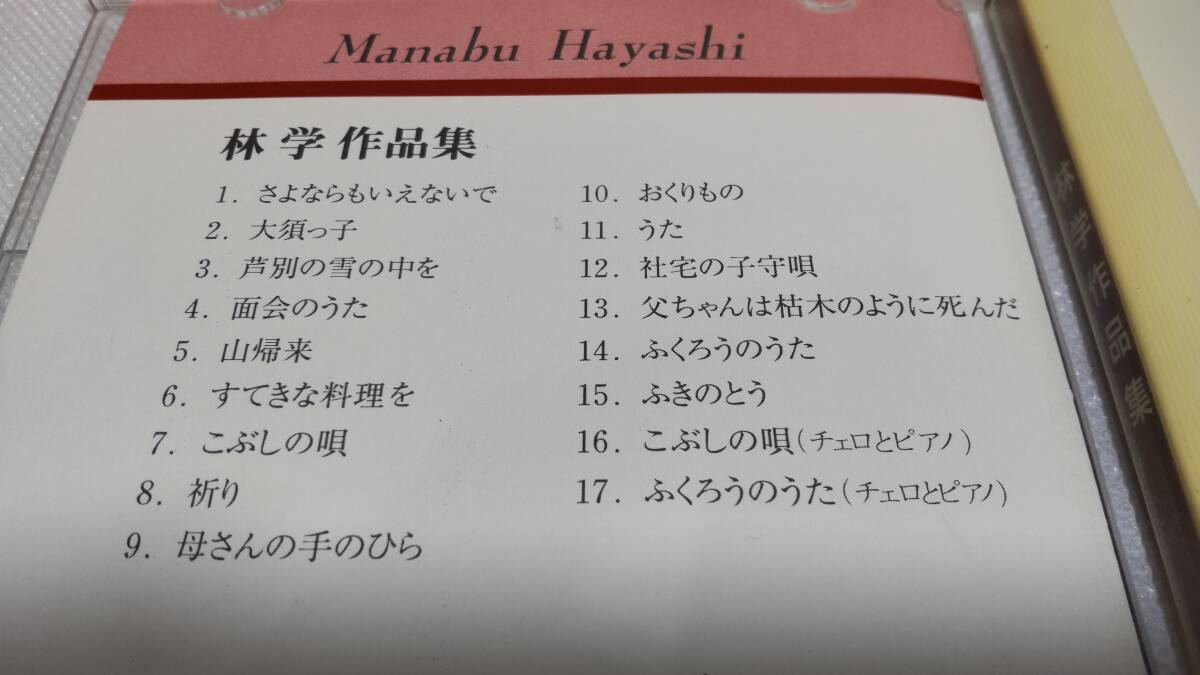 Manabu Hayashi
林 学 作品集
1. さよならもいえないで
2. 大須っ子
3. 芦別の雪の中を
4. 面会のうた
5. 山帰来
6. すてきな料理を
7. こぶしの唄
8. 祈り
9. 母さんの手のひら
10. おくりもの
11. うた
12. 社宅の子守唄
13. 父ちゃんは枯木のように死んだ
14. ふくろうのうた
15. ふきのとう
16. こぶしの唄(チェロとピアノ)
17. ふくろうのうた(チェロとピアノ)
林学作品集